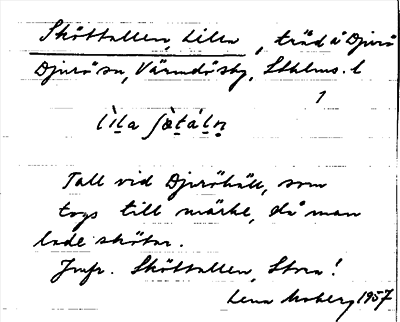 Sköttallen, Lilla, träd å Djurö
Djurö sn, Värmdö sbg, Sthlms. l
1
lìla ʃètáḷṇ
Tall vid Djuröhäll, som
togs till märke, då man
lade skötar.
Jmfr. Sköttallen, Stora!
Lena Moberg 1957